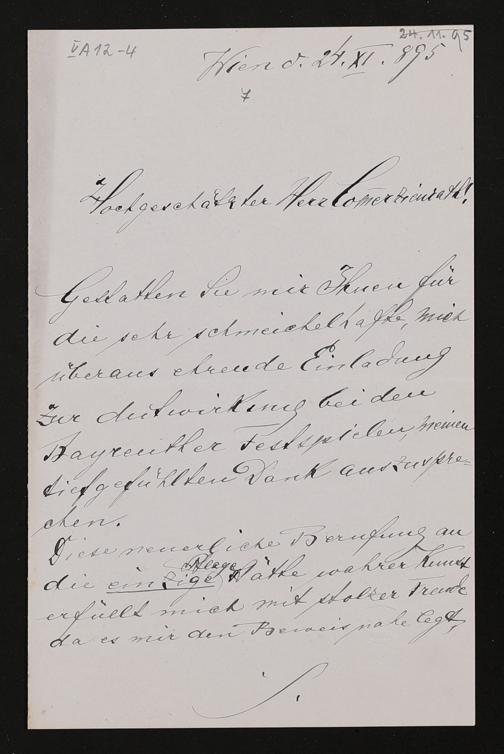 VA12-4
24.11.95
Wien d. 24. XI. 895
7
Hochgeschätzter Herr Comerzienrath!
Gestatten Sie mir Ihnen für
die sehr schmeichelhafte, mich
überaus ehrende Einladung
zur Mitwirkung bei den
Bayreuther Festspielen, meinen
tiefgefühlten Dank auszuspre=
chen.
Diese neuerliche Berufung an
die einzige Pflege
Stätte wahrer Kunst
erfüllt mich mit stolzer Freude
da es mir den Beweis nahe legt,